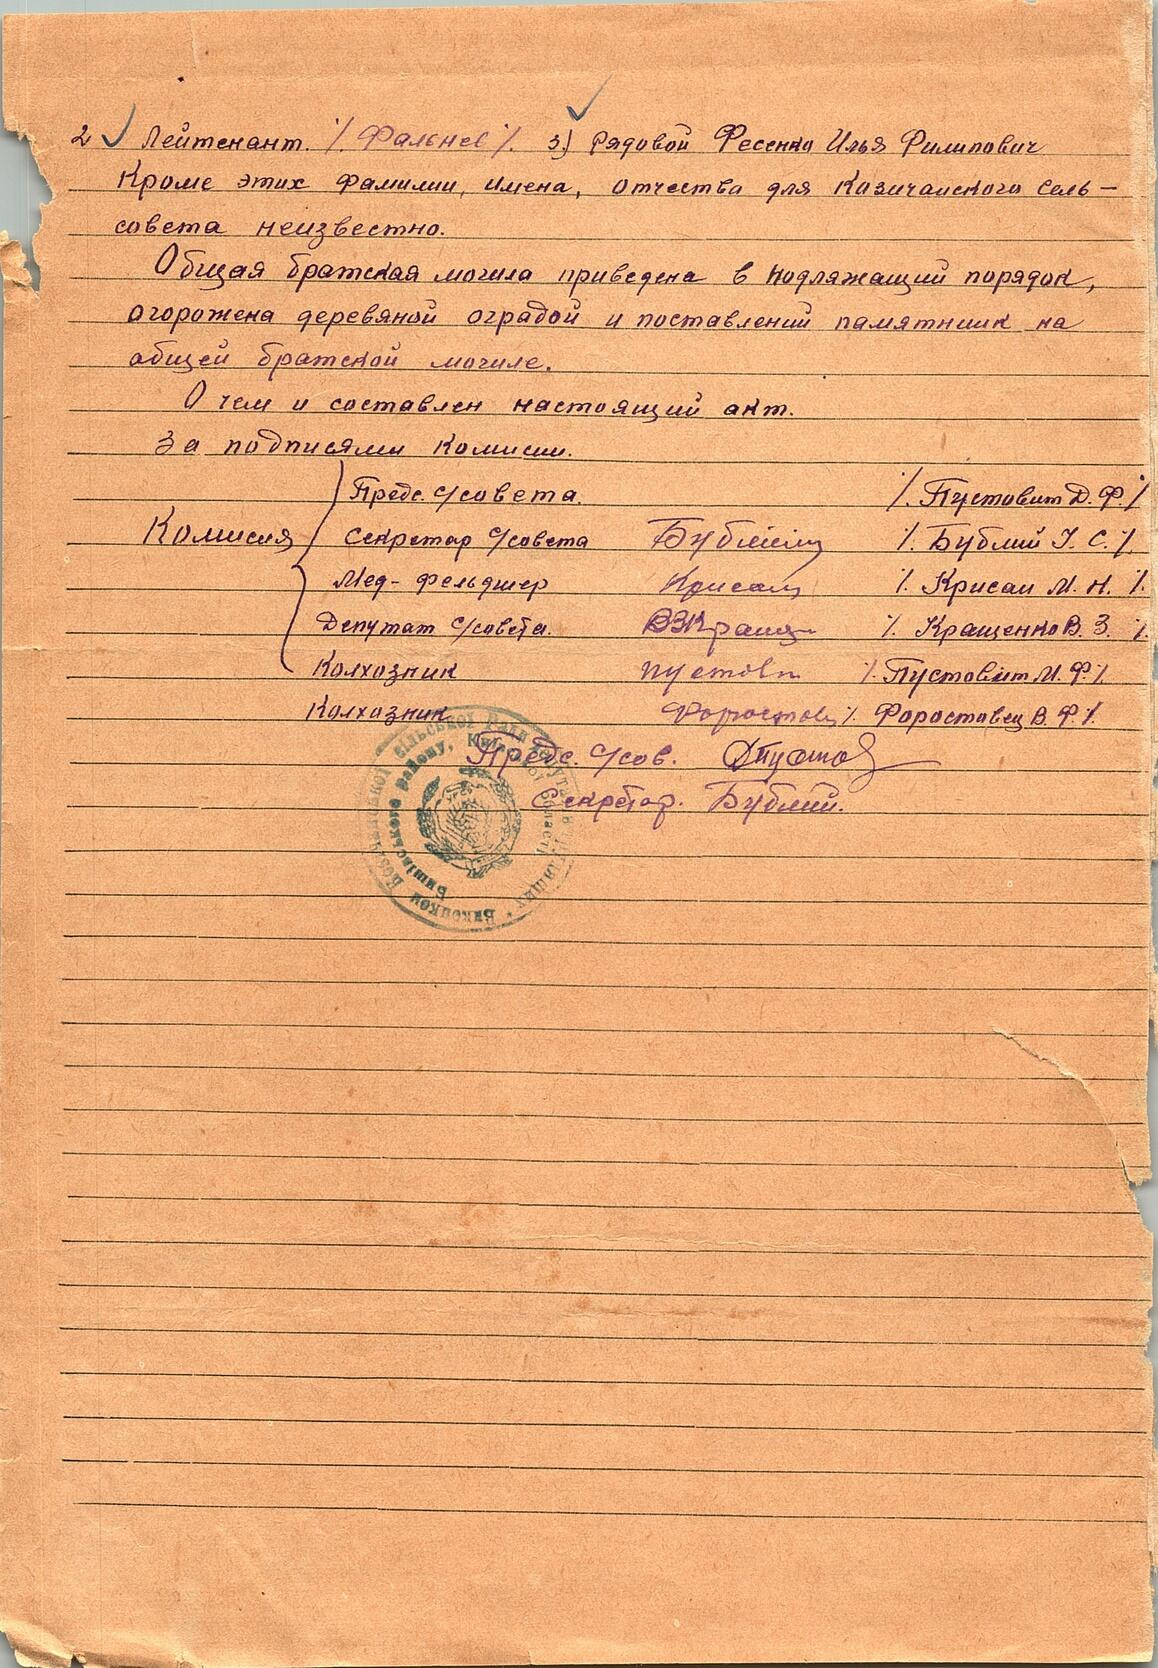 2 Лейтенант. /. Фальнев /. 3) Рядовой Фесенко Илья Филипович
Кроме этих фамилии, имена, отчества для Казичанского сель-
совета неизвестно.
Общая братская могила приведена в подляжащий порядок,
огорожена деревяной оградой и поставлений памятник на
общей братской могиле.
О чем и составлен настоящий акт.
За подписями Комисии.
Предс. с/совета. /. Пустовит Д. Ф. /.
Комисия Секретар с/совета Бублий /. Бублий I. С. /.
Мед-фельдшер Крисан /. Крисан М. Н. /.
Депутат с/совета. ВЗКращ /. Кращенко В. З. /.
Колхозник Пустови /. Пустовит М. Ф /.
Колхозник Форостовец /. Форостовец В. Ф /.
Предс. с/сов. ДПустов
Секретар. Бублий.
Виконком сільської Ради депутатів трудящих
Бишівського району, Київської області